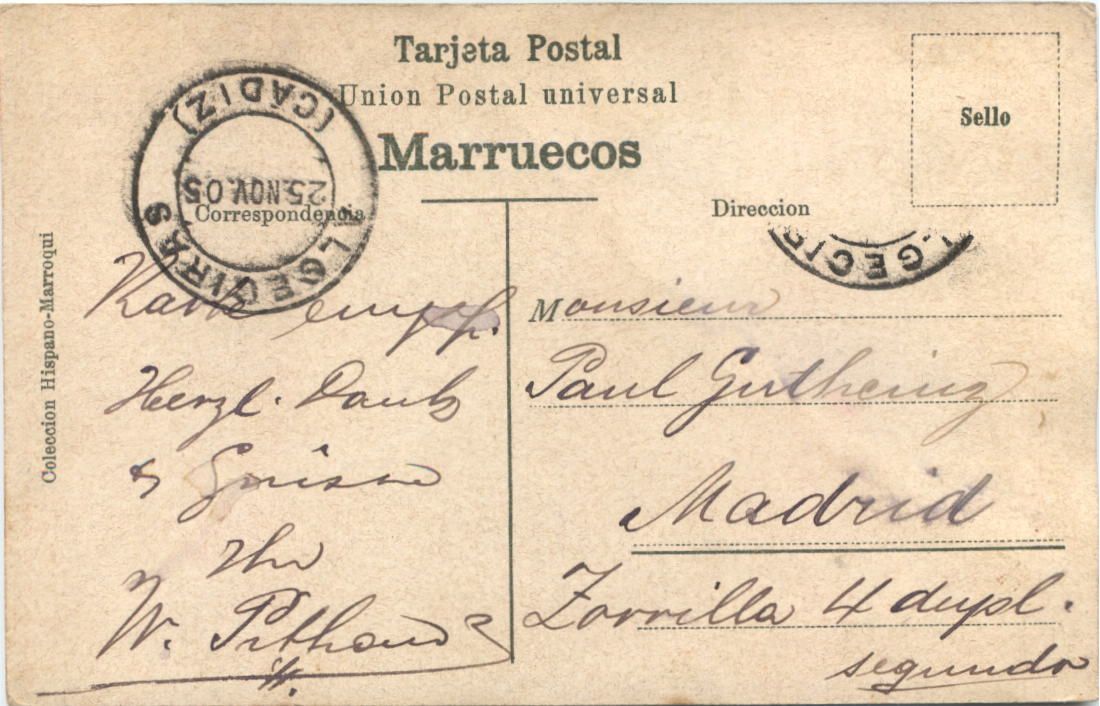 Tarjeta Postal
Union Postal universal
Marruecos
Sello
ALGECIRAS
(CADIZ)
25.NOV.05
Correspondencia
Direccion
LGECIR
Coleccion Hispano-Marroqui
Karte empf.
Herzl. Dank
& Grüsse
Ihr
W.
Monsieur
Paul
Madrid
Zorrilla 4 dupl.
segundo